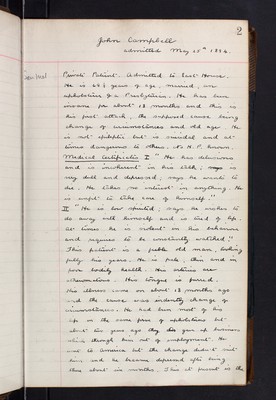 2
John Campbell
admitted May 15th 1894.
Private Patient. Admitted to East House.
He is 68½ years of age, married, an
upholsterer & a Presbyterian. He has been
insane for about 18 months and this is
his first attack, the supposed cause being
change of circumstances and old age. He
is not epileptic but is suicidal and at
times dangerous to others. No H.P. known.
Medical Certificates I "He has delusions
and is incoherent in his talk, is
very dull and depressed, says he wants to
die. He takes no interest in anything. He
is unfit to take care of himself."
II "He is low spirited, says he wishes to
do away with himself and is tired of life.
At times he is violent in his behaviour
and requires to be constantly watched"
This patient is a feeble old man, looking
fully his years. He is pale, thin and in
poor bodily health. His arteries are
atheromatous. His tongue is furred.
His illness came on about 18 months ago
and the cause was evidently change of
circumstances. He had been most of his
life in the same firm of upholsterers but
about two years ago they gave up business
which threw him out of employment. He
went to America but the change didn't suit
him and he became depressed after being
there about six months. This at present is the